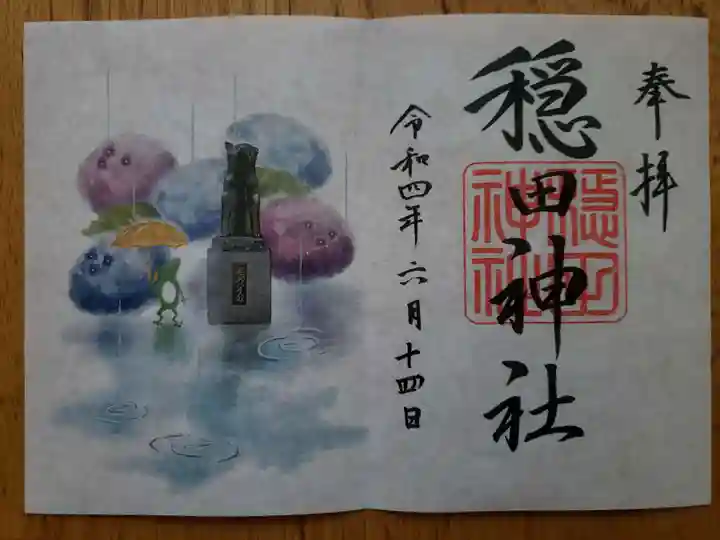 奉拝
穏田神社
穏田
神社
令和四年六月十四日